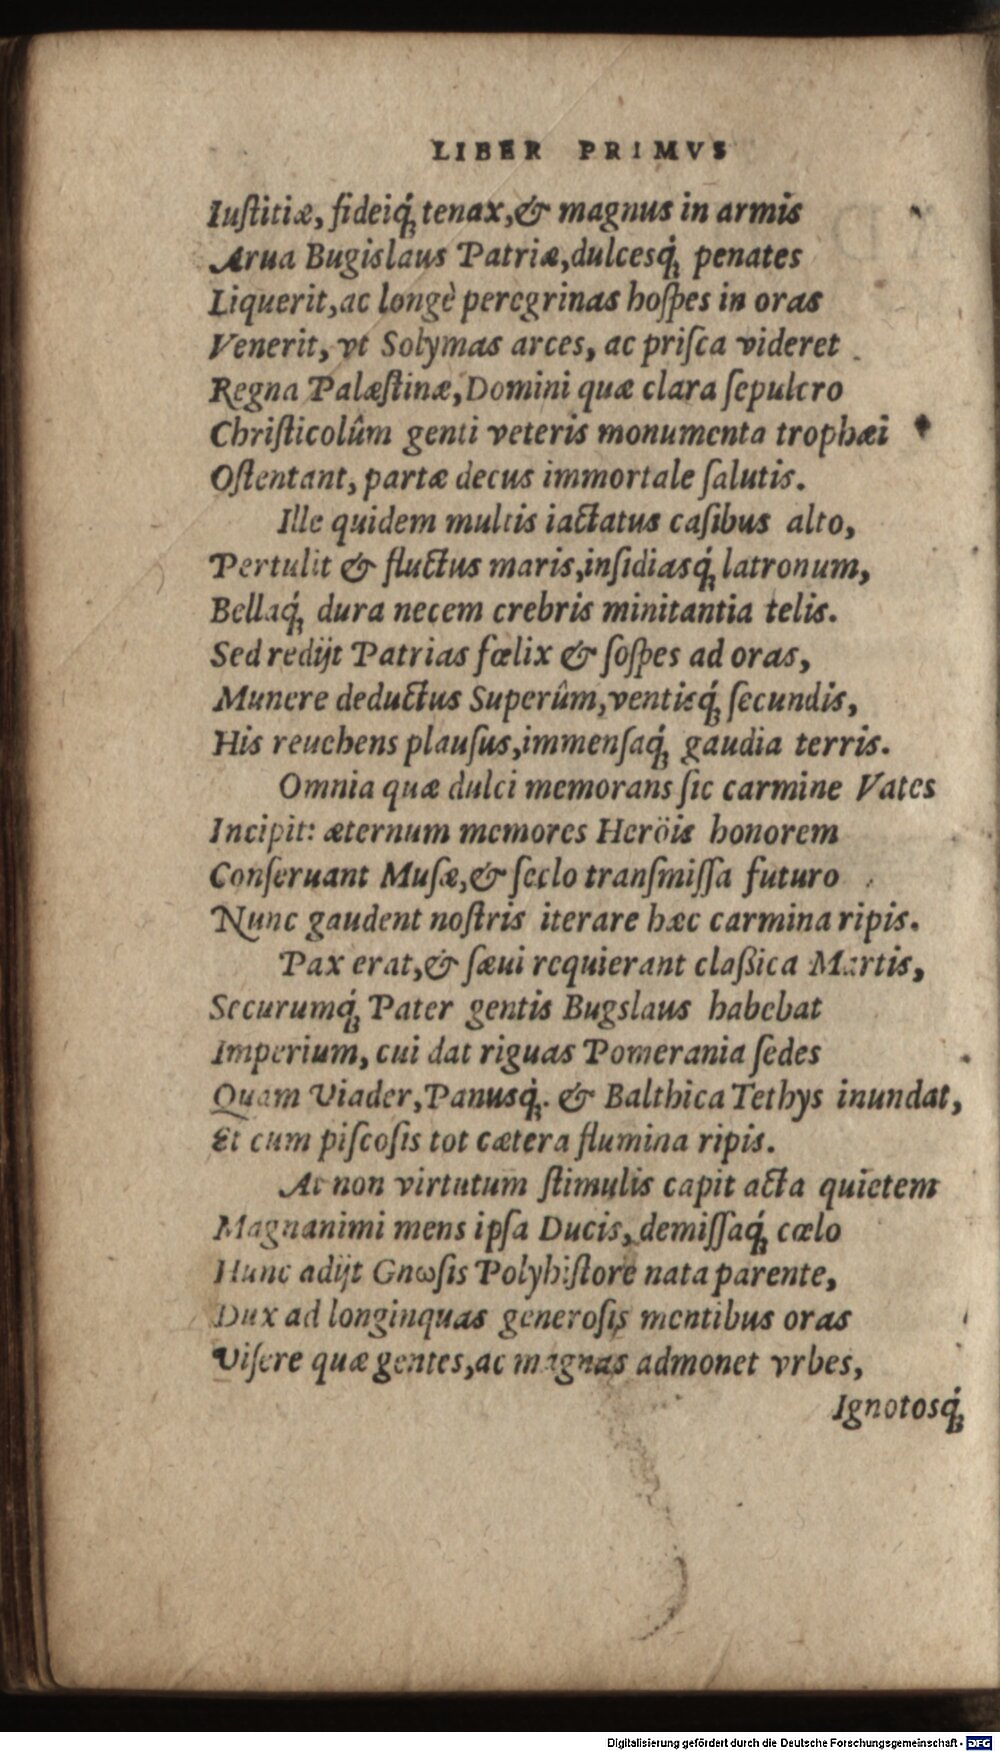 LIBER PRIMVS
Iuſtitiæ, fideiq́; tenax, & magnus in armis
Arua Bugislaus Patriæ, dulcesq́; penates
Liquerit, ac longè peregrinas hoſpes in oras
Venerit, vt Solymas arces, ac priſca videret
Regna Palæſtinæ, Domini quæ clara ſepulcro
Chriſticolûm genti veteris monumenta trophæi
Oſtentant, partæ decus immortale ſalutis.
Ille quidem multis iactatus caſibus alto,
Pertulit & fluctus maris, inſidiasq́; latronum,
Bellaq́; dura necem crebris minitantia telis.
Sed redijt Patrias fœlix & ſoſpes ad oras,
Munere deductus Superûm, ventisq́; ſecundis,
His reuehens plauſus, immenſaq́; gaudia terris.
Omnia quæ dulci memorans ſic carmine Vates
Incipit: æternum memores Heröis honorem
Conſeruant Muſæ, & ſeclo tranſmiſſa futuro
Nunc gaudent noſtris iterare hæc carmina ripis.
Pax erat, & ſæui requierant claßica Martis,
Securumq́; Pater gentis Bugslaus habebat
Imperium, cui dat riguas Pomerania ſedes
Quam Viader, Panusq́;. & Balthica Tethys inundat,
Et cum piſcoſis tot cætera flumina ripis.
At non virtutum ſtimulis capit acta quietem
Magnanimi mens ipſa Ducis, demiſſaq́; cœlo
Hunc adijt Gnωſis Polyhiſtore nata parente,
Dux ad longinquas generoſis mentibus oras
Viſere quæ gentes, ac magnas admonet vrbes,
Ignotosq́;
Digitalisierung gefördert durch die Deutsche Forschungsgemeinschaft - DFG